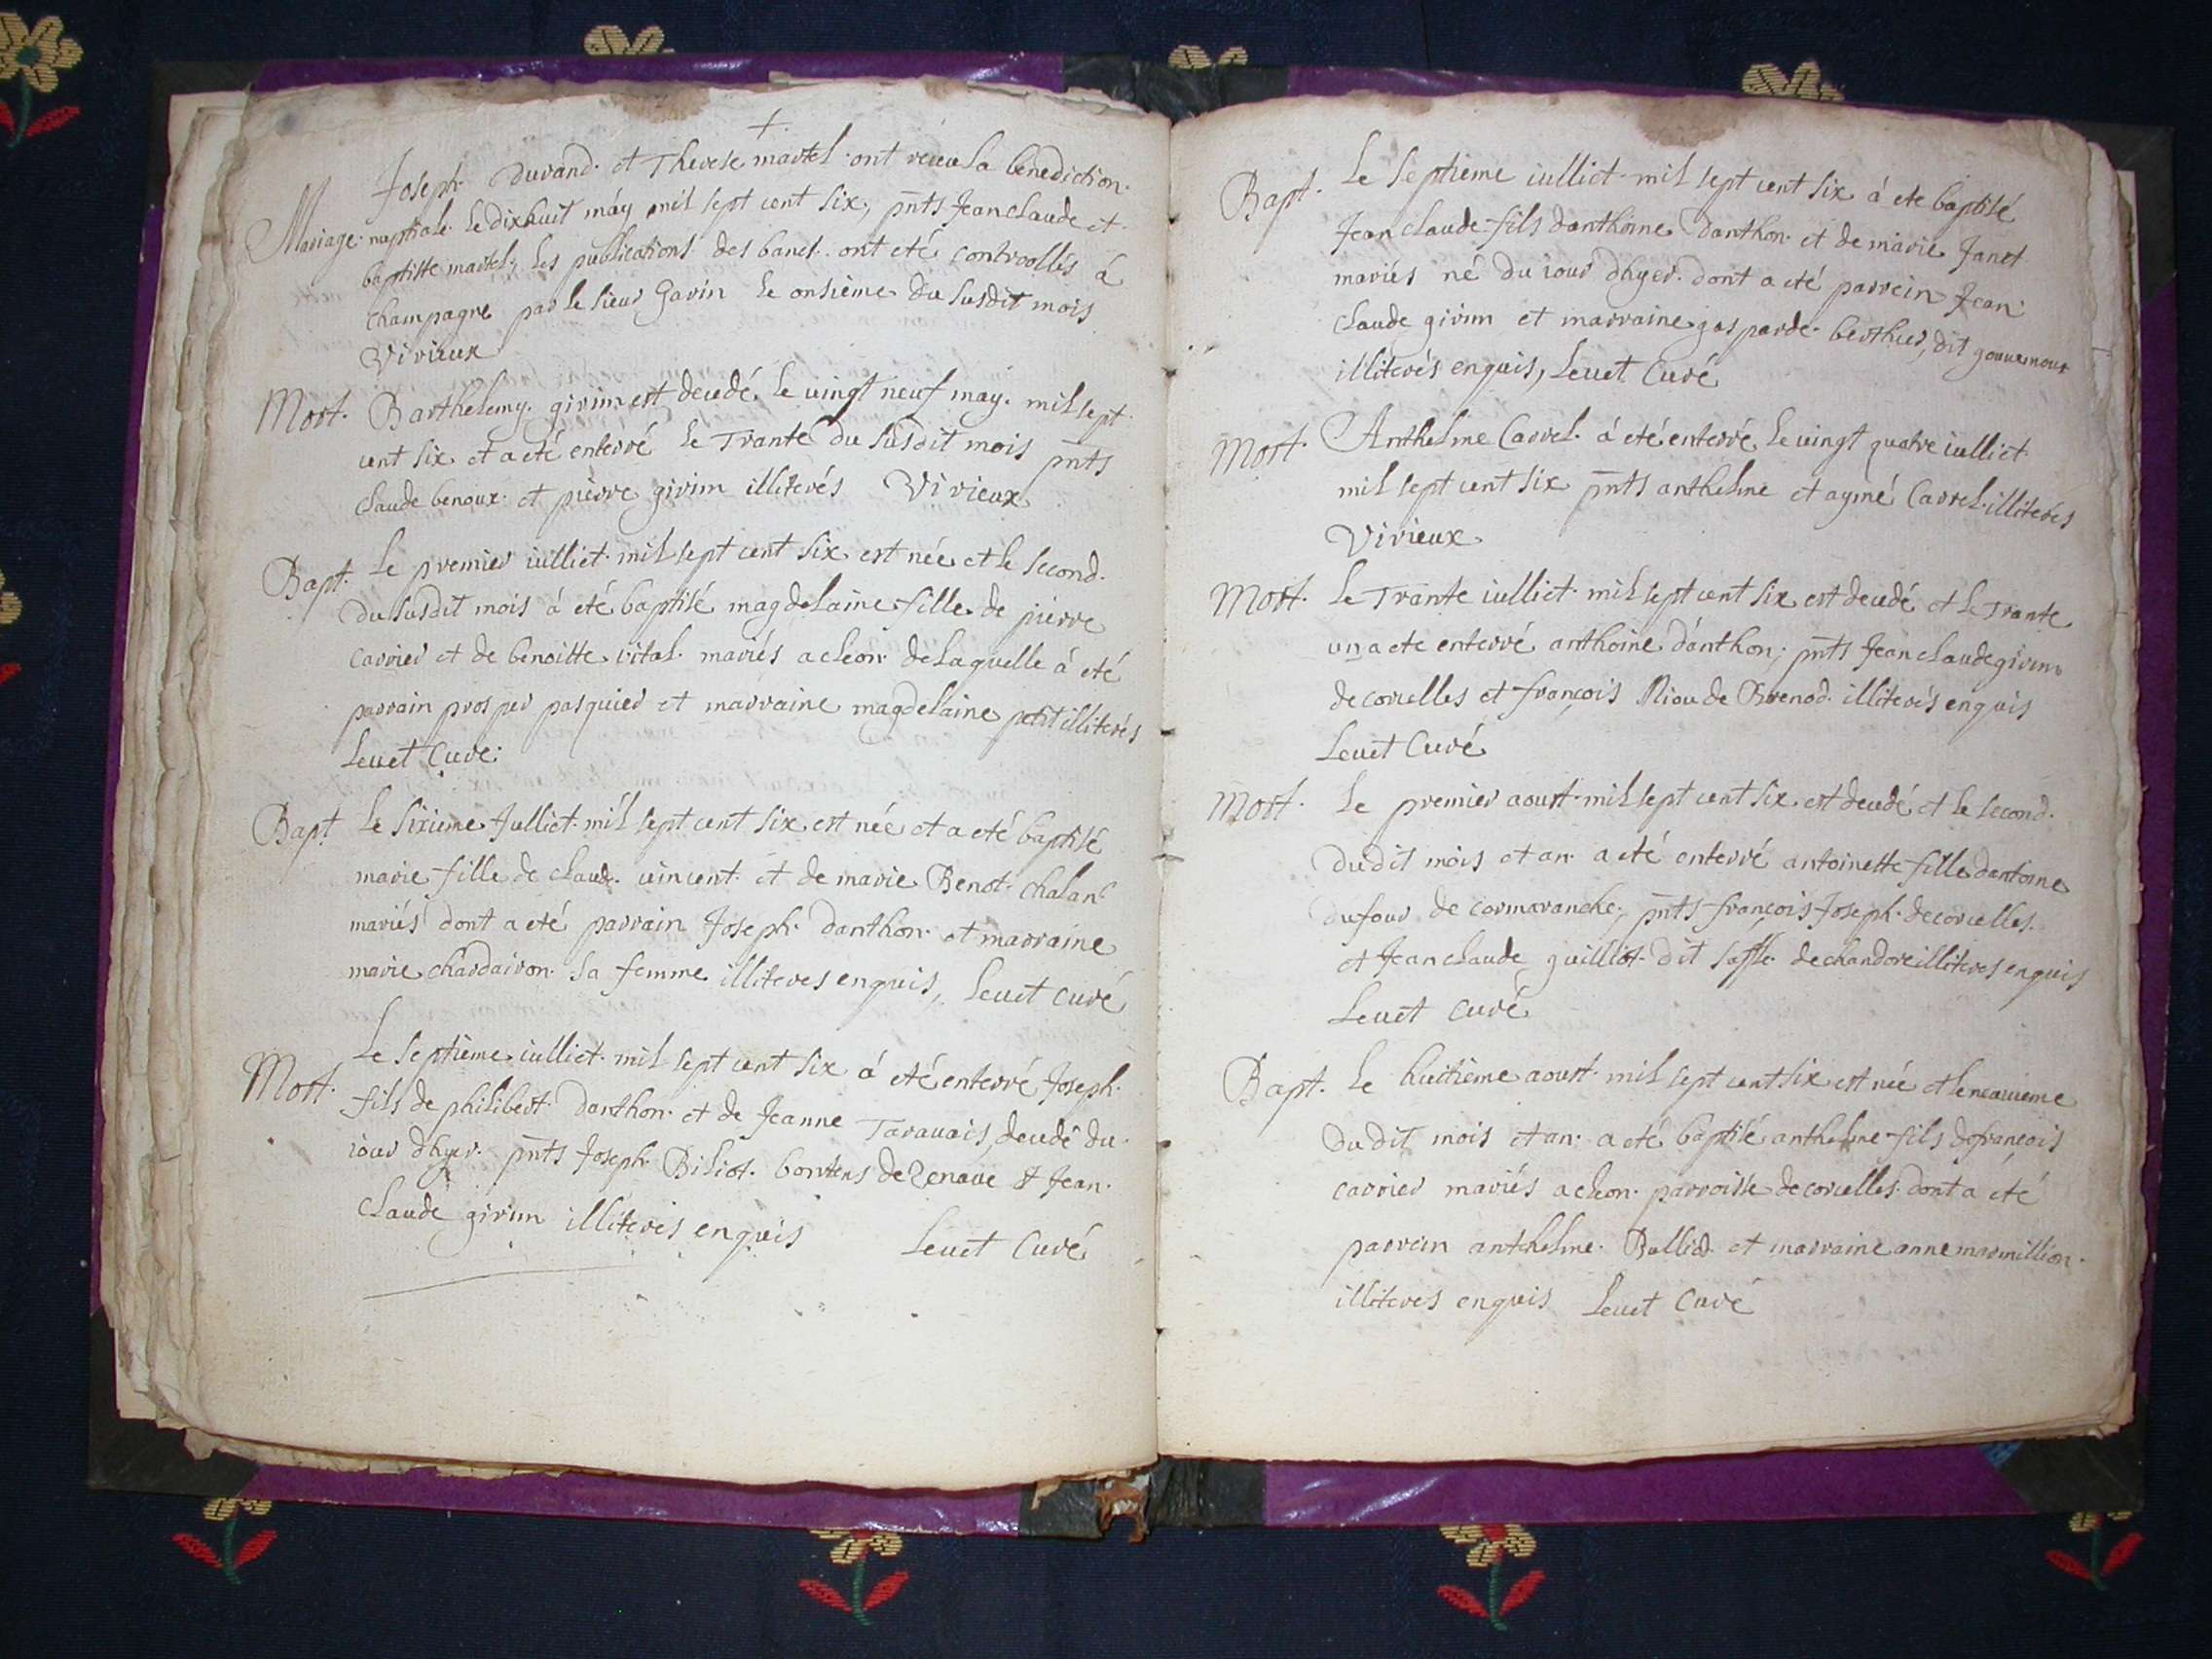 Joseph Durand et Therese martel ont receu la benediction
Mariage nuptiale le dixhuit may mil sept cent six, pnts Jean claude et
baptiste martel, les publications des bancs ont eté controollés à
champagne par le sieur Garin le onsième du susdit mois
Virieux
Mort. Barthelemy girim est decedé le vingt neuf may mil sept
cent six et a eté enterré le Trante du susdit mois pnts
claude benoux et pierre girim illiterés Virieux
Bapt. Le premier iulliet mil sept cent six est née et le second
du susdit mois à eté baptisé magdelaine fille de pierre
carrier et de benoitte vital mariés a cleon de laquelle à eté
parrain prosper pasquier et marraine magdelaine petit illiterés
Levet Curé
Bapt Le sixieme Julliet mil sept cent six est née et a eté baptisé
marie fille de claude vincent et de marie Benot chalan
mariés dont a eté parrain Joseph Danthon et marraine
marie chardairon sa femme illiteres enquis, Levet curé
Mort. Le septième iulliet mil sept cent six á eté enterré Joseph
fils de philibert Danthon et de Jeanne Taravais, decedé du
iour dhyer pnts Joseph Biliot bontems de Lenave et Jean
Claude girim illiterés enquis Levet Curé
Bapt. Le septième iulliet mil sept cent six á ete baptisé
Jean claude fils danthoine Danthon et de marie Janet
mariés né du iour dhyer dont a eté parrein Jean
claude girim et marraine gasparde berthier, dit
illiterés enquis, Levet Curé
Mort. Anthelme Carrel á eté enterré le vingt quatre iulliet
mil sept cent six pnts anthelme et aymé Carrel illiteres
Virieux
Mort. Le Trante iulliet mil sept cent six est decedé et le Trante
un a ete enterré anthoine danthon; pnts Jean claude girim
de corcelles et françois Niou de Brenod illiterés enquis
Levet Curé
Mort. Le premier aoust mil sept cent six est decedé et le second
dudit mois et an a eté enterré antoinette fille dantoine
dufour de cormaranche, pnts françois Joseph de corcelles
et Jean claude guilliot dit de chandore illiteres enquis
Levet curé
Bapt. Le huitième aoust mil sept cent six est née et le neauvieme
dudit mois et an a eté baptisé anthelme fils de françois
carrier mariés a cleon parroisse de corcelles dont a été
parrein anthelme Balliod et marraine anne marmillion
illiteres enquis Levet Curé